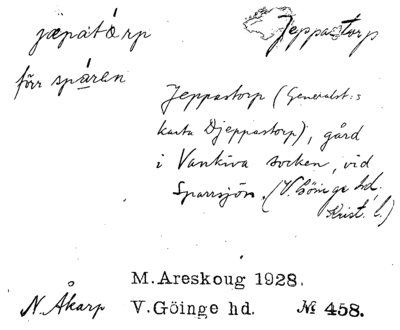 jæpatǻrp Jeppastorp
förr spáren
Jeppastorp (Generalst:s
karta Djeppastorp), gård
i Vankiva socken, vid
Sparrsjön. (V. Göinge hd.
Krist. l.)
M. Areskoug 1928.
N. Åkarp V. Göinge hd. № 458.